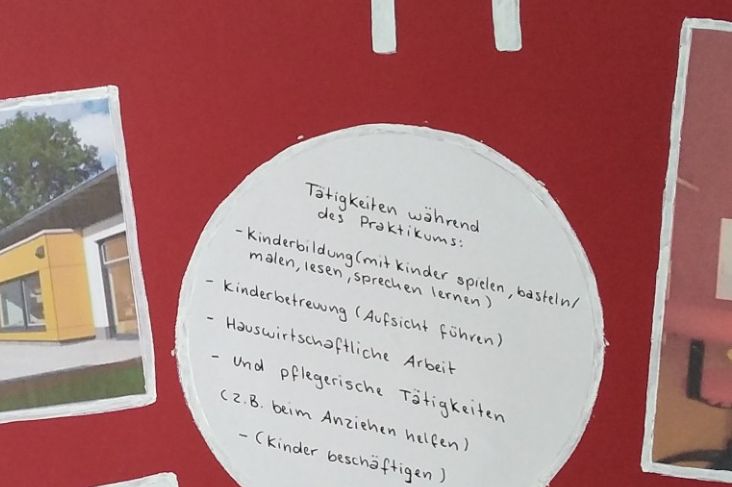 Tätigkeiten während
des Praktikums:
- Kinderbildung (mit Kinder spielen, basteln/
malen, lesen, sprechen lernen)
- Kinderbetreuung (Aufsicht führen)
- Hauswirtschaftliche Arbeit
- und pflegerische Tätigkeiten
(z.B. beim Anziehen helfen)
- (Kinder beschäftigen)